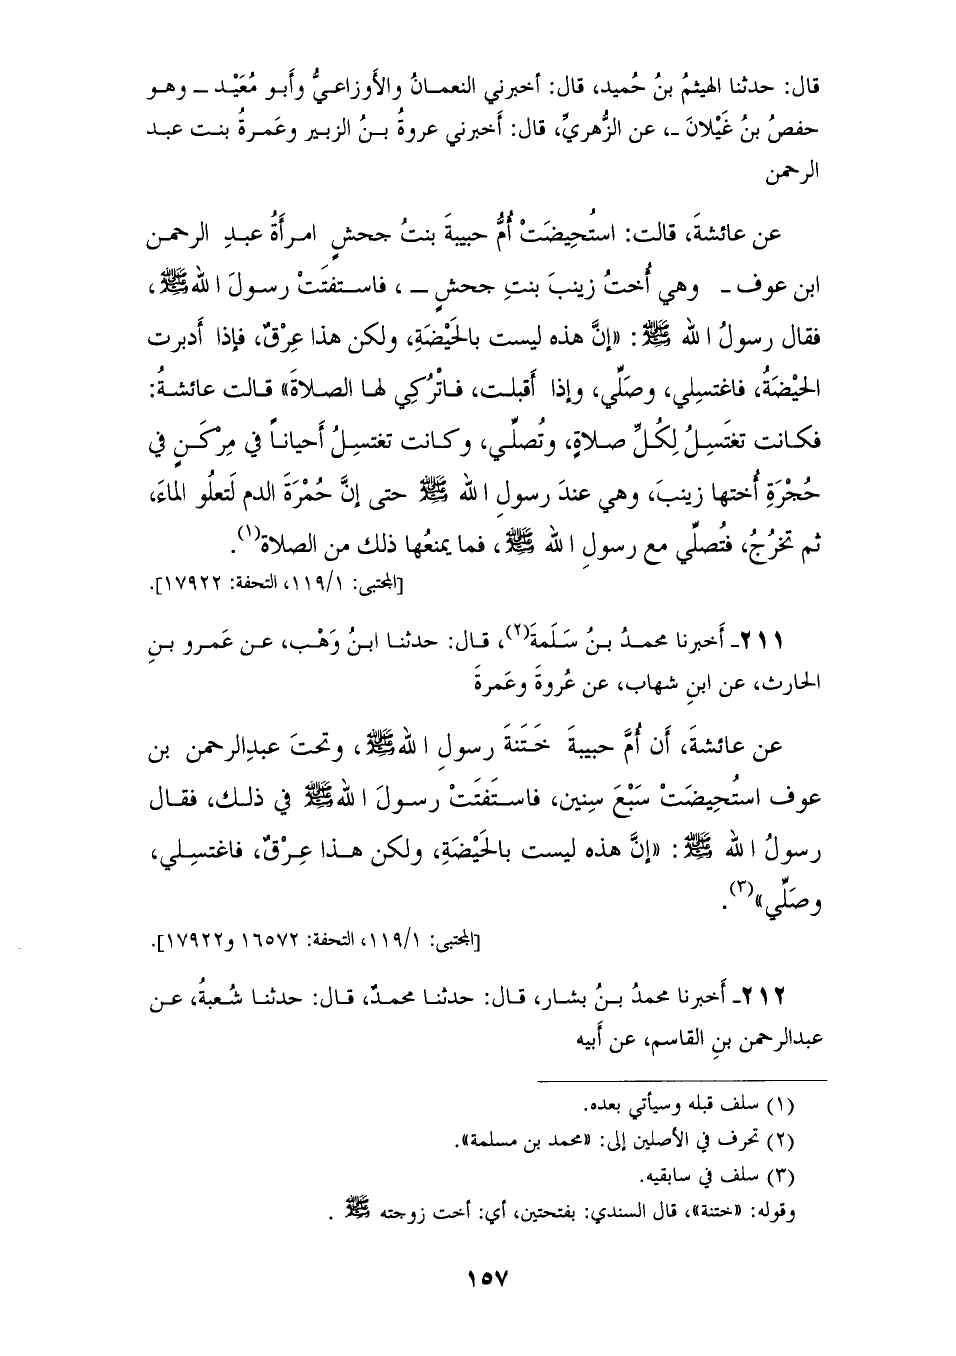 قال: حدثنا الهيثمُ بنُ حُميد، قال: أخبرني النعمـانُ والأَوزاعـيُّ وأَبـو مُعَيْـد ــ وهـو
حفصُ بنُ غَيْلانَ ــ، عن الزُّهريِّ، قال: أَخبرني عروةُ بـنُ الزبـير وعَمـرةُ بنـت عبـد
الرحمن
عن عائشةَ، قالت: استُحِيضَتْ أُمُّ حبيبةَ بنتُ جحشٍ امـرأَةُ عبـدِ الرحمـن
ابن عوف ــ وهي أُختُ زينبَ بنتِ جحشٍ ــ، فاسـتفتَتْ رسـولَ الله ﷺ،
فقال رسولُ الله ﷺ: «إنَّ هذه ليست بالحَيْضَةِ، ولكن هذا عِرْقٌ، فإذا أَدبرت
الحَيْضَةُ، فاغتسِلي، وصَلِّي، وإذا أَقبلت، فـاتْرُكِي لهـا الصـلاةَ» قـالت عائشـةُ:
فكـانت تغتَسِـلُ لِكُـلِّ صـلاةٍ، وتُصلِّـي، وكـانت تغتسِـلُ أَحيانـاً في مِرْكَـنٍ في
حُجْرَةِ أُختها زينبَ، وهي عندَ رسولِ الله ﷺ حتى إنَّ حُمْرَةَ الدم لَتعلُو الماءَ،
ثم تخرُجُ، فتُصلِّي مع رسولِ الله ﷺ، فما يمنعُها ذلك من الصلاة(١).
[المجتبى: ١/١١٩، التحفة: ١٧٩٢٢].
٢١١ـ أَخبرنا محمـدُ بـنُ سَـلَمة(٢)، قـال: حدثنـا ابـنُ وَهْـب، عـن عَمـرو بـنِ
الحارث، عن ابنِ شهاب، عن عُروةَ وعَمرةَ
عن عائشةَ، أَن أُمَّ حبيبةَ خَـتَنةَ رسولِ الله ﷺ، وتحتَ عبدِالرحمن بن
عوف استُحيضَـتْ سَبْعَ سِنين، فاسـتَفتَتْ رسـولَ الله ﷺ في ذلـك، فقـال
رسولُ الله ﷺ: «إنَّ هذه ليست بالحَيْضَةِ، ولكن هـذا عِـرْقٌ، فاغتسِـلي،
وصَلِّي»(٣).
[المجتبى: ١/١١٩، التحفة: ١٦٥٧٢ و١٧٩٢٢].
٢١٢ـ أَخبرنا محمدُ بـنُ بشار، قـال: حدثنـا محمـدٌ، قـال: حدثنـا شُـعبةُ، عـن
عبدالرحمن بنِ القاسم، عن أَبيه
(١) سلف قبله وسيأتي بعده.
(٢) تحرف في الأصلين إلى: «محمد بن مسلمة».
(٣) سلف في سابقيه.
وقوله: «ختنة»، قال السندي: بفتحتين، أي: أخت زوجته ﷺ.
١٥٧